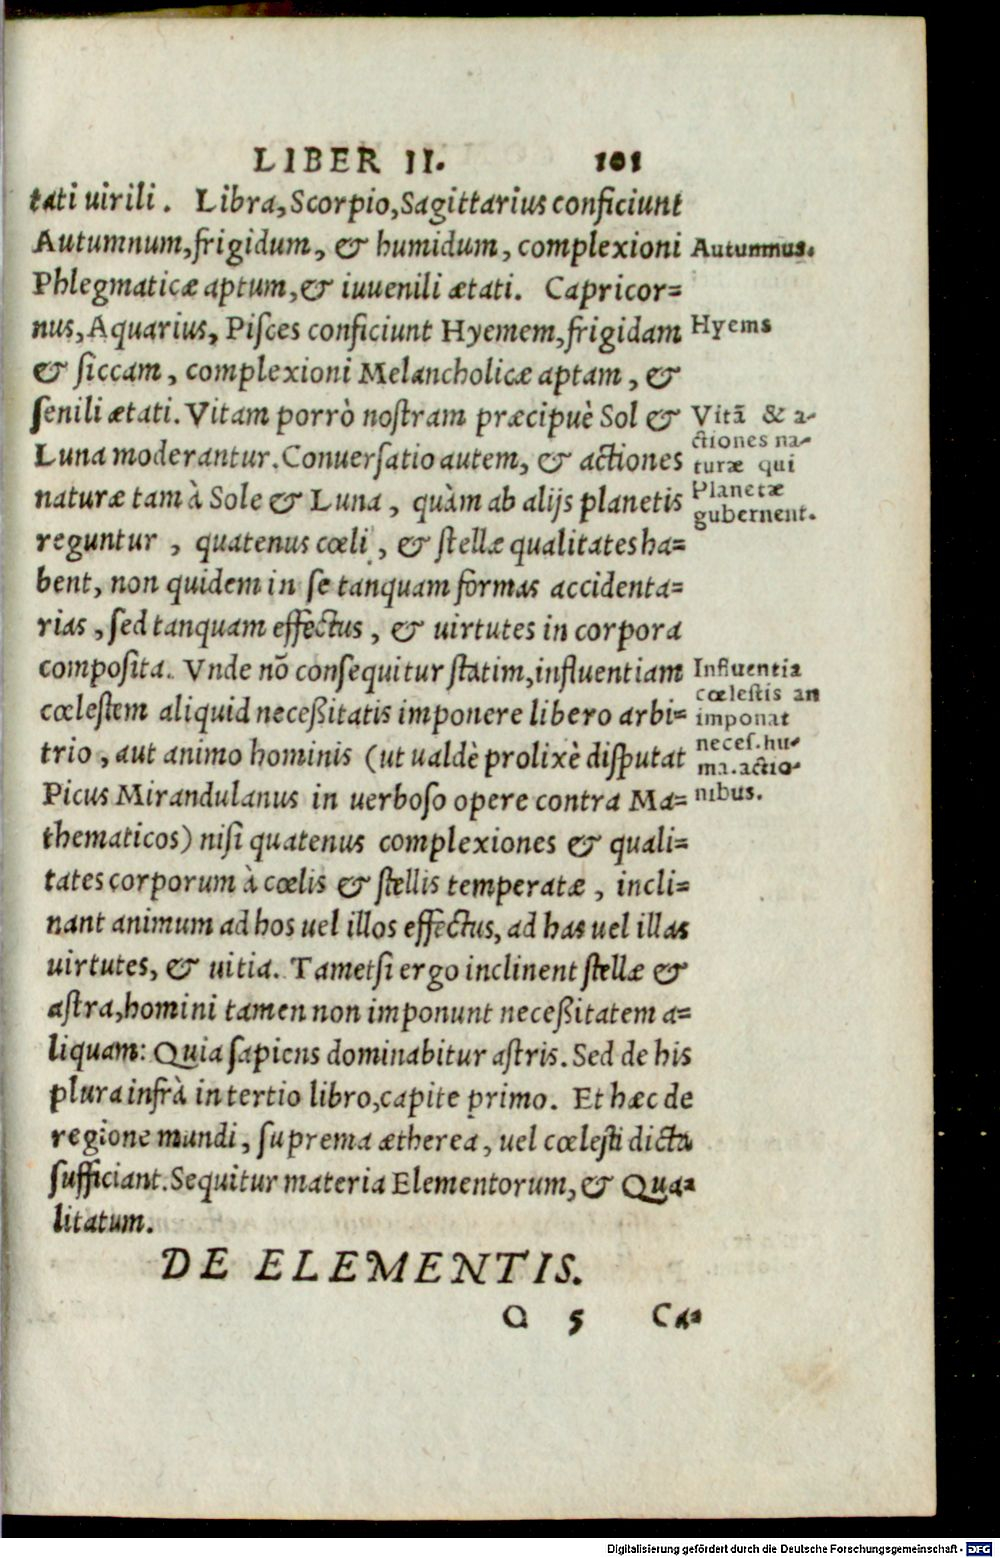 LIBER II. 101
tati uirili. Libra, Scorpio, Sagittarius conficiunt
Autumnum, frigidum, & humidum, complexioni
Phlegmaticæ aptum, & iuuenili ætati. Capricor=
nus, Aquarius, Piſces conficiunt Hyemem, frigidam
& ſiccam, complexioni Melancholicæ aptam, &
ſenili ætati. Vitam porrò noſtram præcipuè Sol &
Luna moderantur. Conuerſatio autem, & actiones
naturæ tam à Sole & Luna, quàm ab alijs planetis
reguntur, quatenus cœli, & ſtellæ qualitates ha=
bent, non quidem in ſe tanquam formas accidenta=
rias, ſed tanquam effectus, & uirtutes in corpora
compoſita. Vnde nõ conſequitur ſtatim, influentiam
cœleſtem aliquid neceßitatis imponere libero arbi=
trio, aut animo hominis (ut ualdè prolixè diſputat
Picus Mirandulanus in uerboſo opere contra Ma=
thematicos) niſi quatenus complexiones & quali=
tates corporum à cœlis & ſtellis temperatæ, incli=
nant animum ad hos uel illos effectus, ad has uel illas
uirtutes, & uitia. Tametſi ergo inclinent ſtellæ &
aſtra, homini tamen non imponunt neceßitatem a=
liquam: Quia ſapiens dominabitur aſtris. Sed de his
plura infrà in tertio libro, capite primo. Et hæc de
regione mundi, ſuprema ætherea, uel cœleſti dicta
ſufficiant. Sequitur materia Elementorum, & Qua=
litatum.
DE ELEMENTIS.
Q 5 Ca=
Autumnus.
Hyems
Vitã & a-
ctiones na-
turæ qui
Planetæ
gubernent.
Influentia
cœleſtis an
imponat
neceſ. hu-
ma. actio-
nibus.
Digitalisierung gefördert durch die Deutsche Forschungsgemeinschaft - DFG